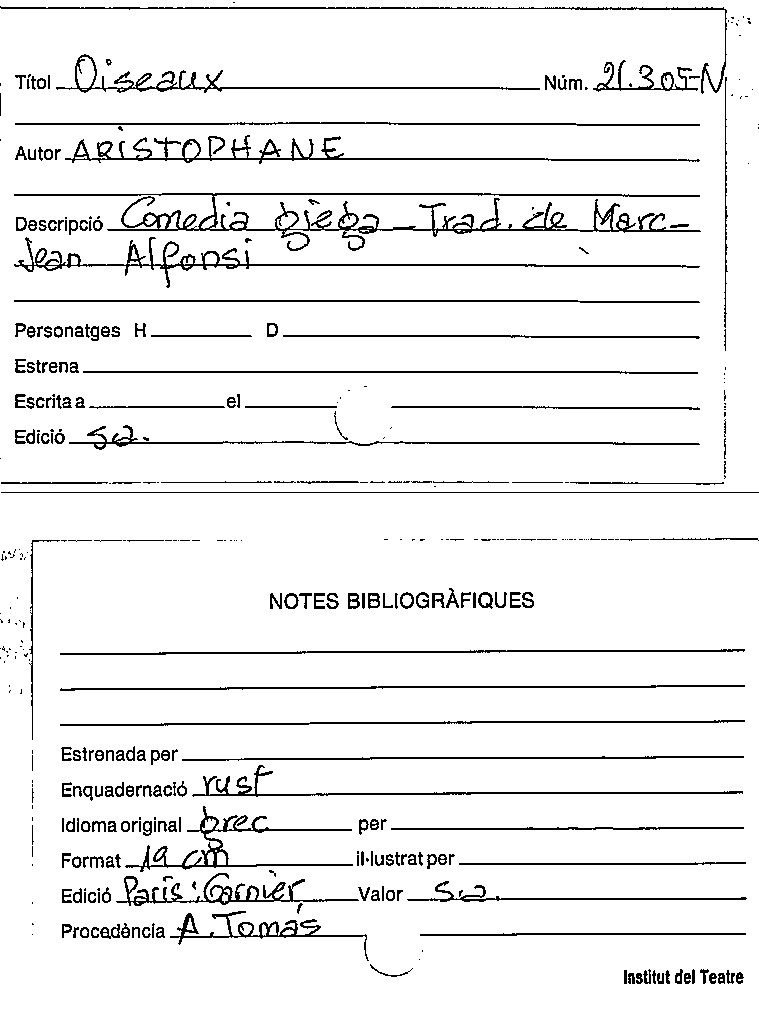 Títol Oiseaux Núm. 21.305-N
Autor ARISTOPHANE
Descripció Comedia giega - Trad. de Marc-
Jean Alfonsi
Personatges H D
Estrena
Escrita a el
Edició s.a.
NOTES BIBLIOGRÀFIQUES
Estrenada per
Enquadernació rust
Idioma original grec per
Format 19 cm il·lustrat per
Edició París: Garnier, Valor s.a.
Procedència A. Tomás
Institut del Teatre